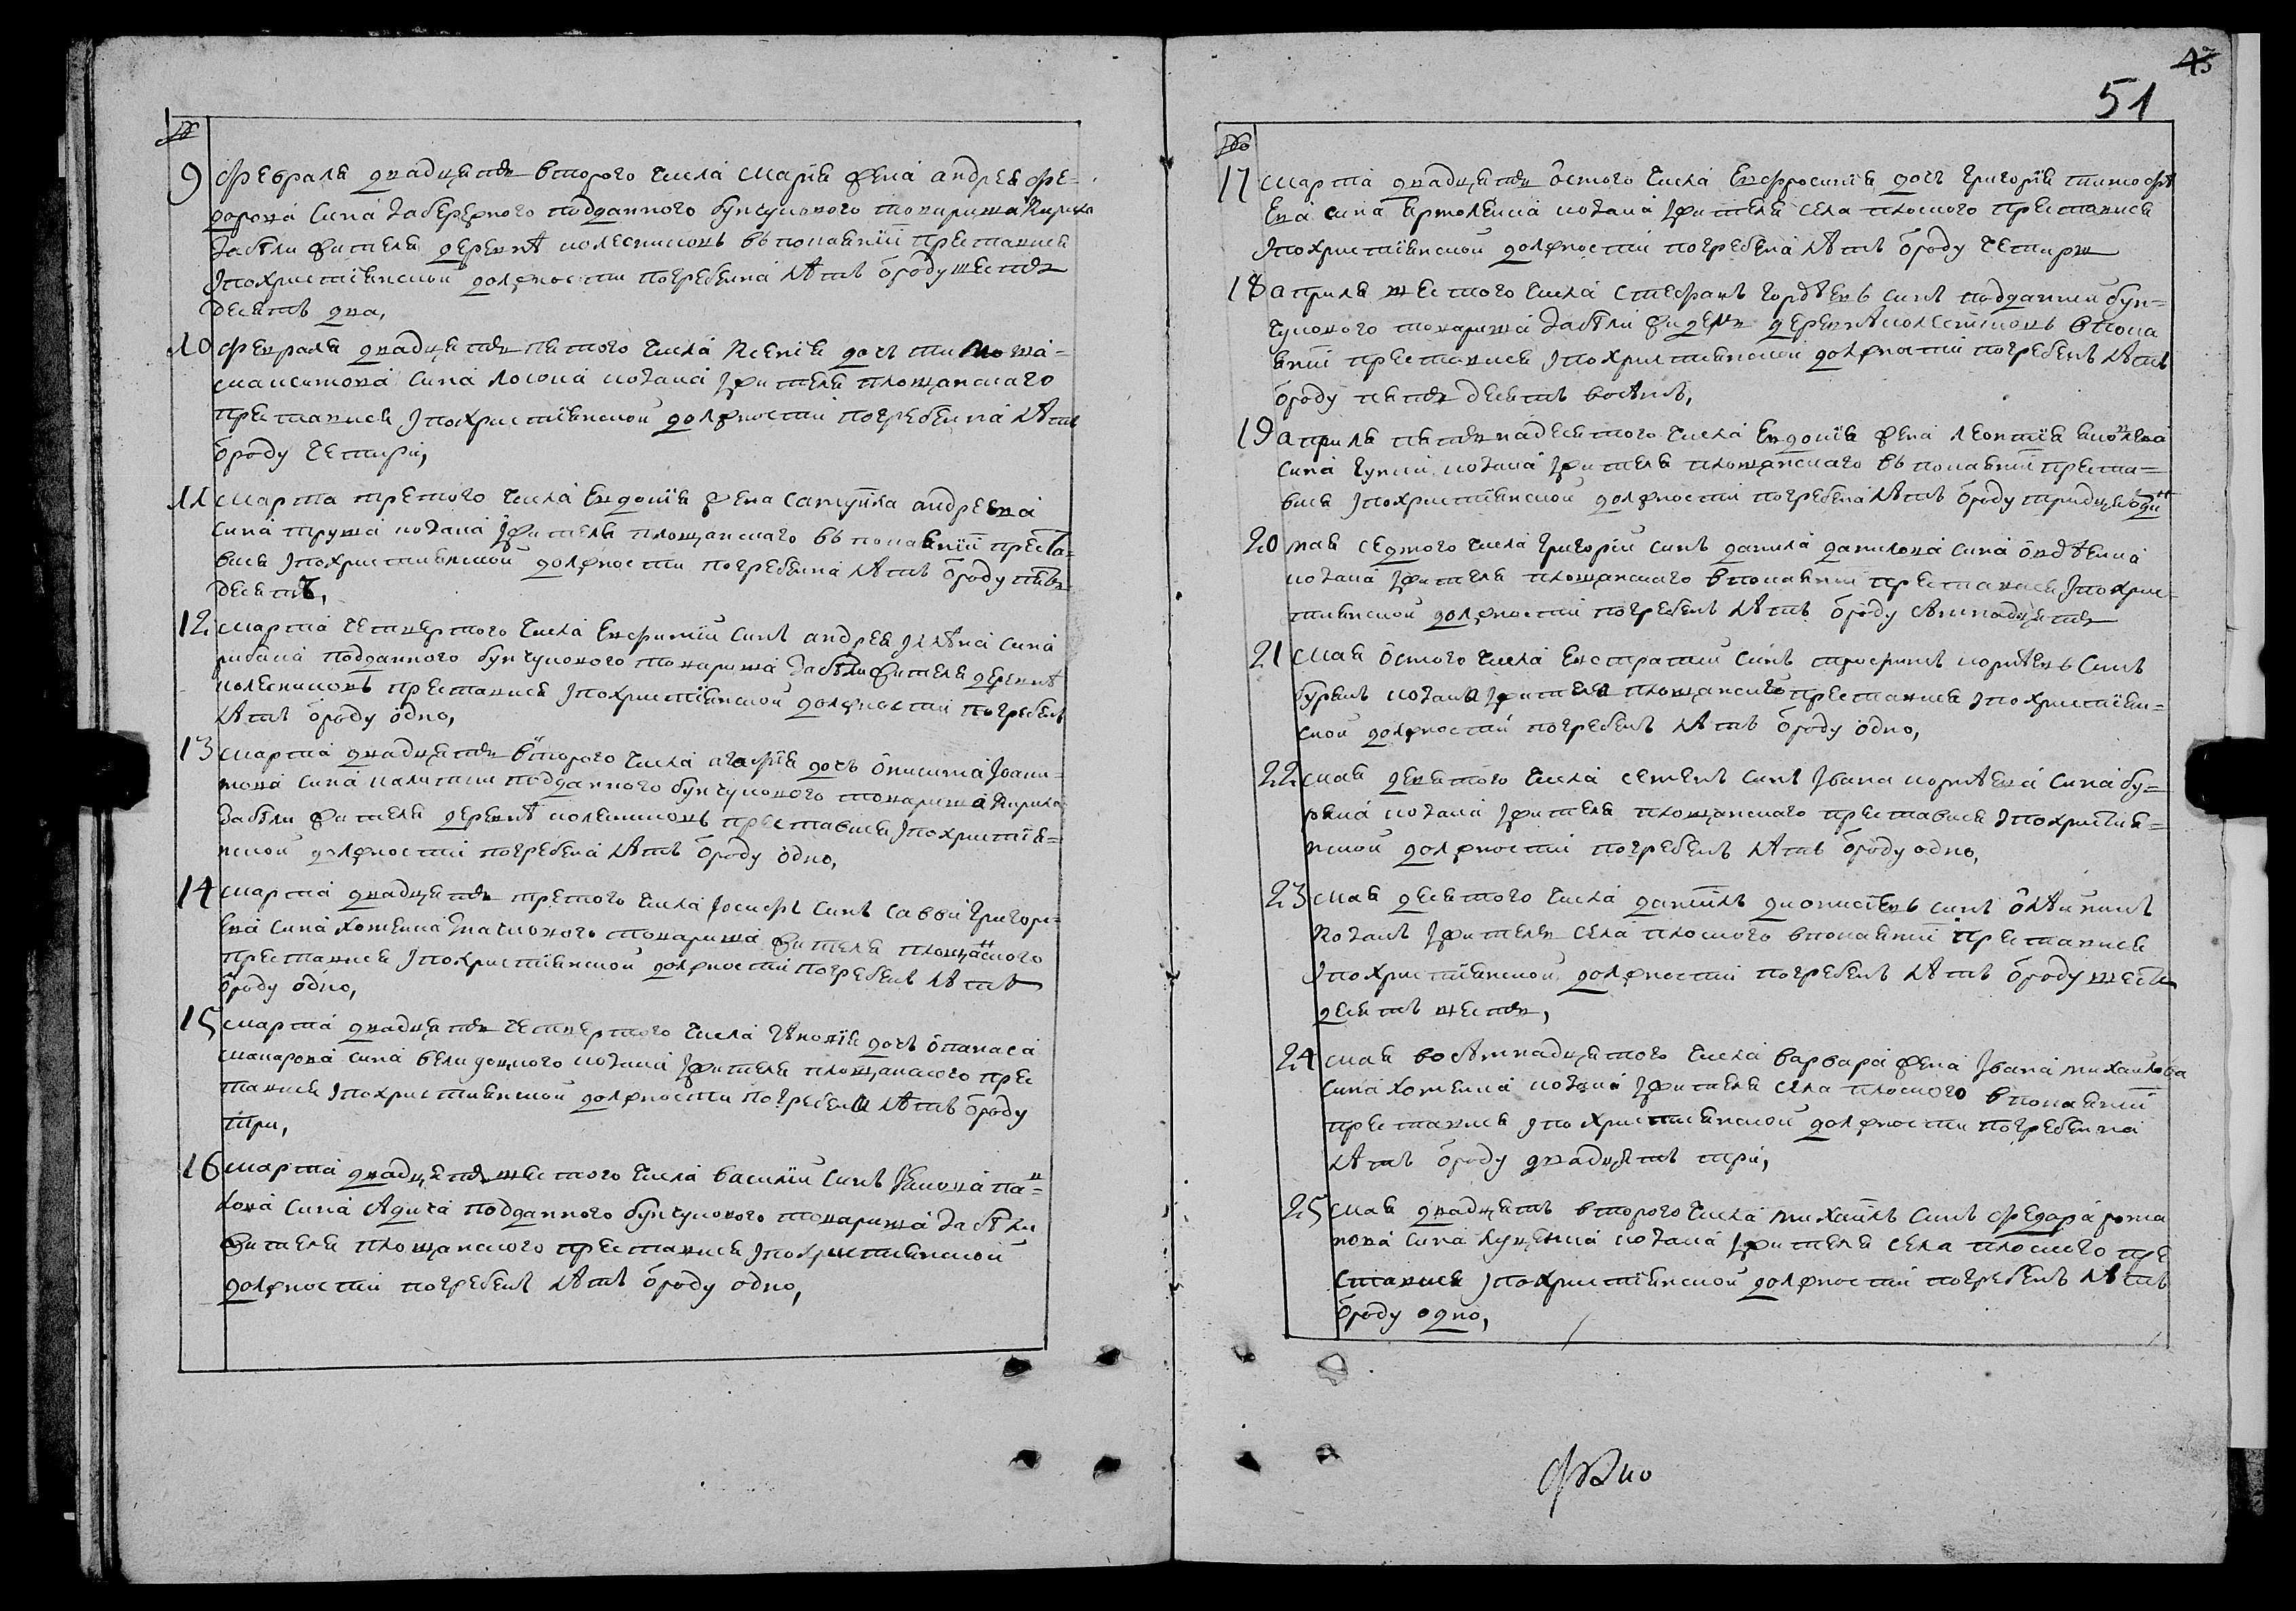 №
9 февраля двадцять второго числа мария жена андрея фе-
дорова сина забережного подданного бунчукового товариша кирила
забѣли жителя деревнѣ колесниковъ въ покаянїи преставися
і по христїянской должности погребенна лѣтъ ѿроду шесть
десятъ два,
10 февраля двадцять пятого числа ксенїя дочь тимоша-
максимова сина лосока козака жителя площанскаго
преставися і по христїянской должности погребенна лѣтъ
ѿроду четири,
11 марта третого числа евдокїя жена самуила андреева
сина труша козака жителя площанскаго въ покаянїи преста-
вися і по християнской должности погребенна лѣтъ ѿроду пять
десятъ,
12 марта четвертого числа евфимїи синъ андрея иллѣна сина
рибака подданного бунчукового товариша забѣли жителя деревнѣ
колесниковъ преставися і по христїянской должности погребенъ
лѣтъ ѿроду одно,
13 марта двадцять второго числа агафїя дочь онисима іоани-
кова сина калитки подданного бунчукового товариша кирила
забѣли жителя деревнѣ колесниковъ преставися і по христїя-
нской должности погребена лѣтъ ѿроду одно,
14 марта двадцять третого числа іосифъ синъ саввы григори-
ева сина хоменка значкового товариша жителя площанского
преставися і по христїянской должности погребенъ лѣтъ
ѿроду одно,
15 марта двадцять четвертого числа явдокїя дочь опанаса
макарова сина козака жителя площанского пре
тавися і по християнской должности погребена лѣтъ ѿроду
три,
16 марта двадцять шестого числа василїи синъ якова па-
лова сина сѣдича подданного бунчукового товариша забѣли
жителя площанского преставися і по християнской
должности погребенъ лѣтъ ѿроду одно,
51
№
17 марта двадцять ѡсмого числа евфросинїя дочь григорїя тимофѣ
ева сина ярмоленка козака жителя села плоского преставися
і по христїянской должности погребена лѣтъ ѿроду четири
18 априля шестого числа стефанъ гордѣевъ синъ подданий бун-
чукового товариша забѣли жидель деревнѣ колесниковъ впока
янїи преставися і по християнской должности погребенъ лѣтъ
ѿроду пять десятъ восѣмъ,
19 априля пятьнадесятого числа евдокїя жена леонтїя
сина козака жителя площанскаго въ покаянїи преста-
вися і по христїянской должности погребена лѣтъ ѿроду тридцяь один
20 мая седмого числа григорїи синъ данила данилова сина
козака жителя площанского впокаянїи преставися і по хрис-
тиянской должности погребенъ лѣтъ ѿроду сѣмнадцять
21 мая ѡсмого числа евстратїи синъ трофимъ корнѣевъ синъ
бурякъ козака жителя площанского преставися і по христїян-
ской должности погребенъ лѣтъ ѿроду одно,
22 мая девятого числа семенъ синъ івана корнѣева сина бу-
ряка козака жителя площанского преставися і по христия-
нской должности погребенъ лѣтъ ѿроду одно,
23 мая десятого числа данїилъ дионисїевъ синъ олѣйникъ
козакъ жителъ села плоского впокаянїи преставися
і по христїянской должности погребенъ лѣтъ ѿроду шесть
десятъ шесть,
24 мая восѣмнадцятого числа варвара жена івана михайлова
сина хоменка козака жителя села плоского впокаянїи
преставися і по християнской должности погребенна
лѣтъ ѿроду двадцятъ три,
25 мая двадцятъ второго числа михаилъ синъ федора рома
нова сина луценка козака жителя села плоского пре
ставися і по христїянской должности погребенъ лѣтъ
ѿроду одно,